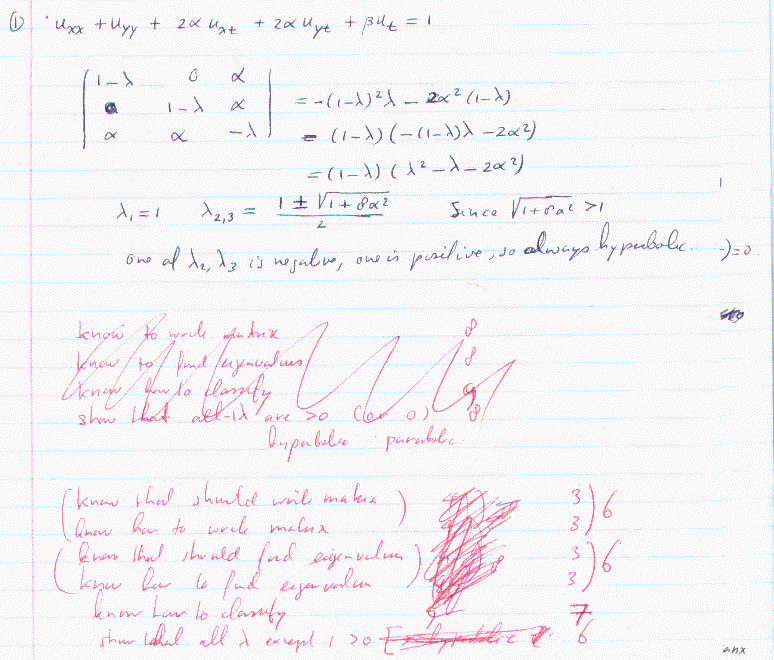 ① u_xx + u_yy + 2α u_xt + 2α u_yt + βu_t = 1
| 1-λ 0 α |
| 0 1-λ α | = -(1-λ)²λ - 2α²(1-λ)
| α α -λ | = (1-λ)(-(1-λ)λ - 2α²)
= (1-λ)(λ² - λ - 2α²)
λ₁ = 1 λ₂,₃ = (1 ± √(1+8α²))/2 Since √(1+8α²) > 1
one of λ₂, λ₃ is negative, one is positive, so always hyperbolic.
)=0.
know to write matrix 8
know to find eigenvalues 8
know how to classify 9
show that all λ are >0 (or 0) 8
hyperbolic parabolic
(know that should write matrix) 3) 6
know how to write matrix 3
(know that should find eigenvalues) 3) 6
know how to find eigenvalues 3
know how to classify 7
show that all λ except 1 > 0 6